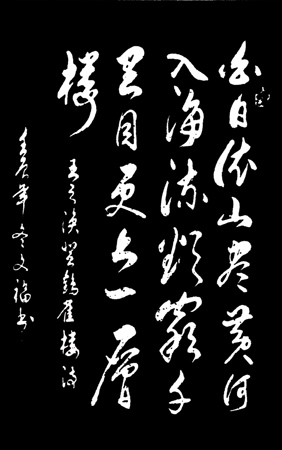 白日依山尽黄河
入海流欲窮千
里目更上一層
楼
王之涣登鹳雀楼诗
壬辰年冬文福书